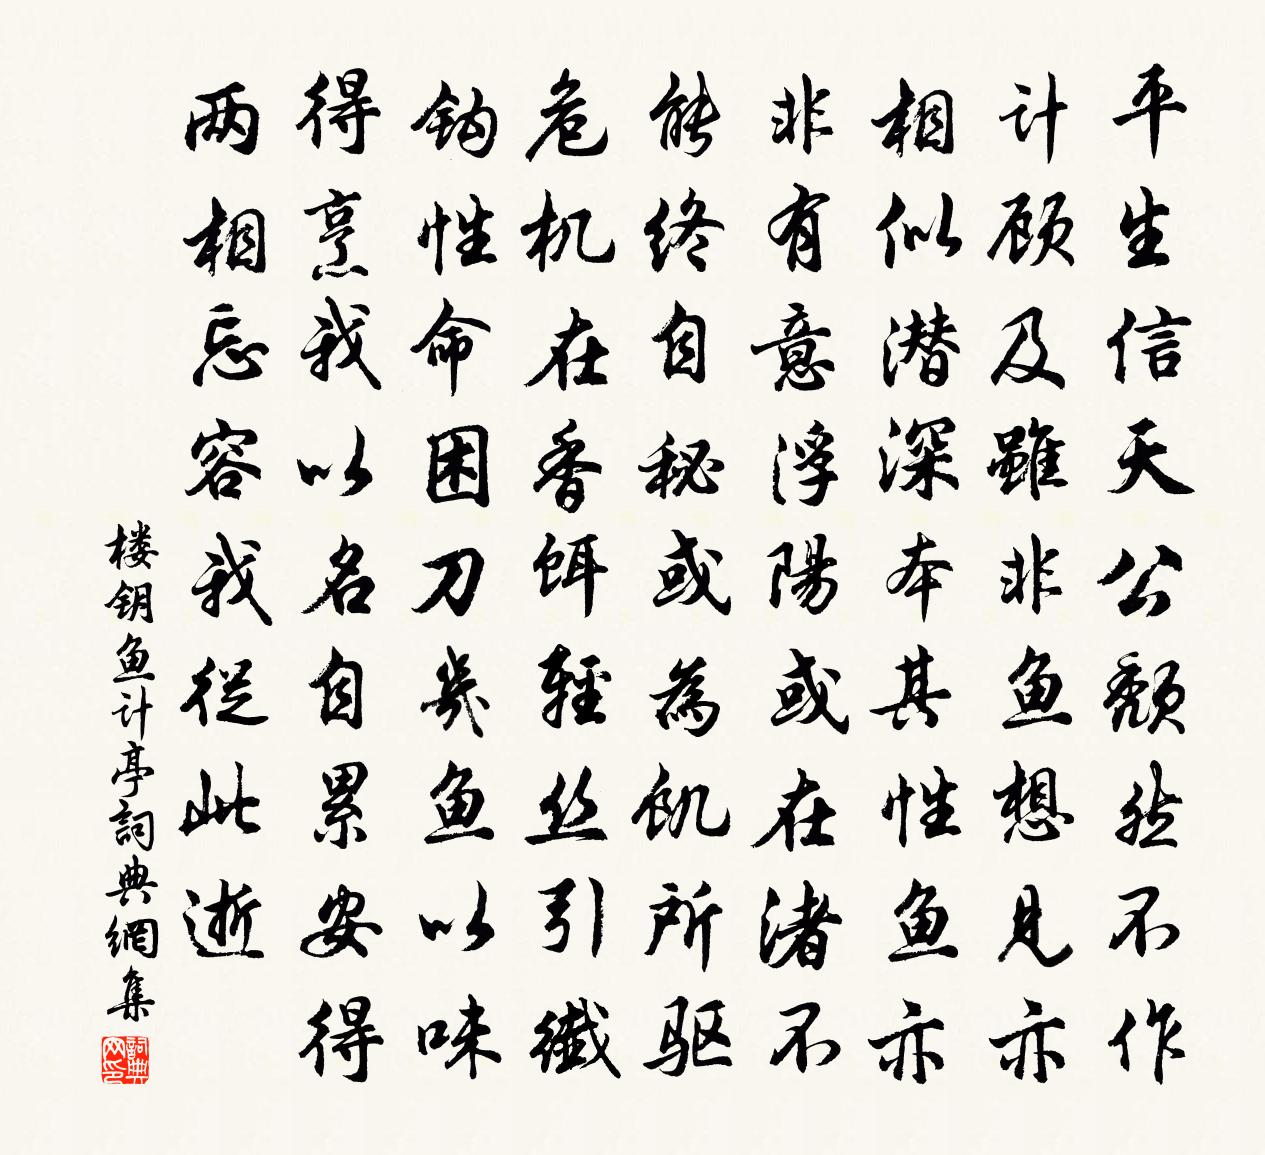 平生信天公颓然不作
计顾及虽非鱼想见亦
相似潜深本其性鱼亦
非有意浮陽或在渚不
能终自秘或為饥所驱
危机在香饵輕丝引纖
钩性命困刀几鱼以味
得烹我以名自累安得
两相忘容我從此逝
楼钥鱼计亭詞典網集
詞典网印